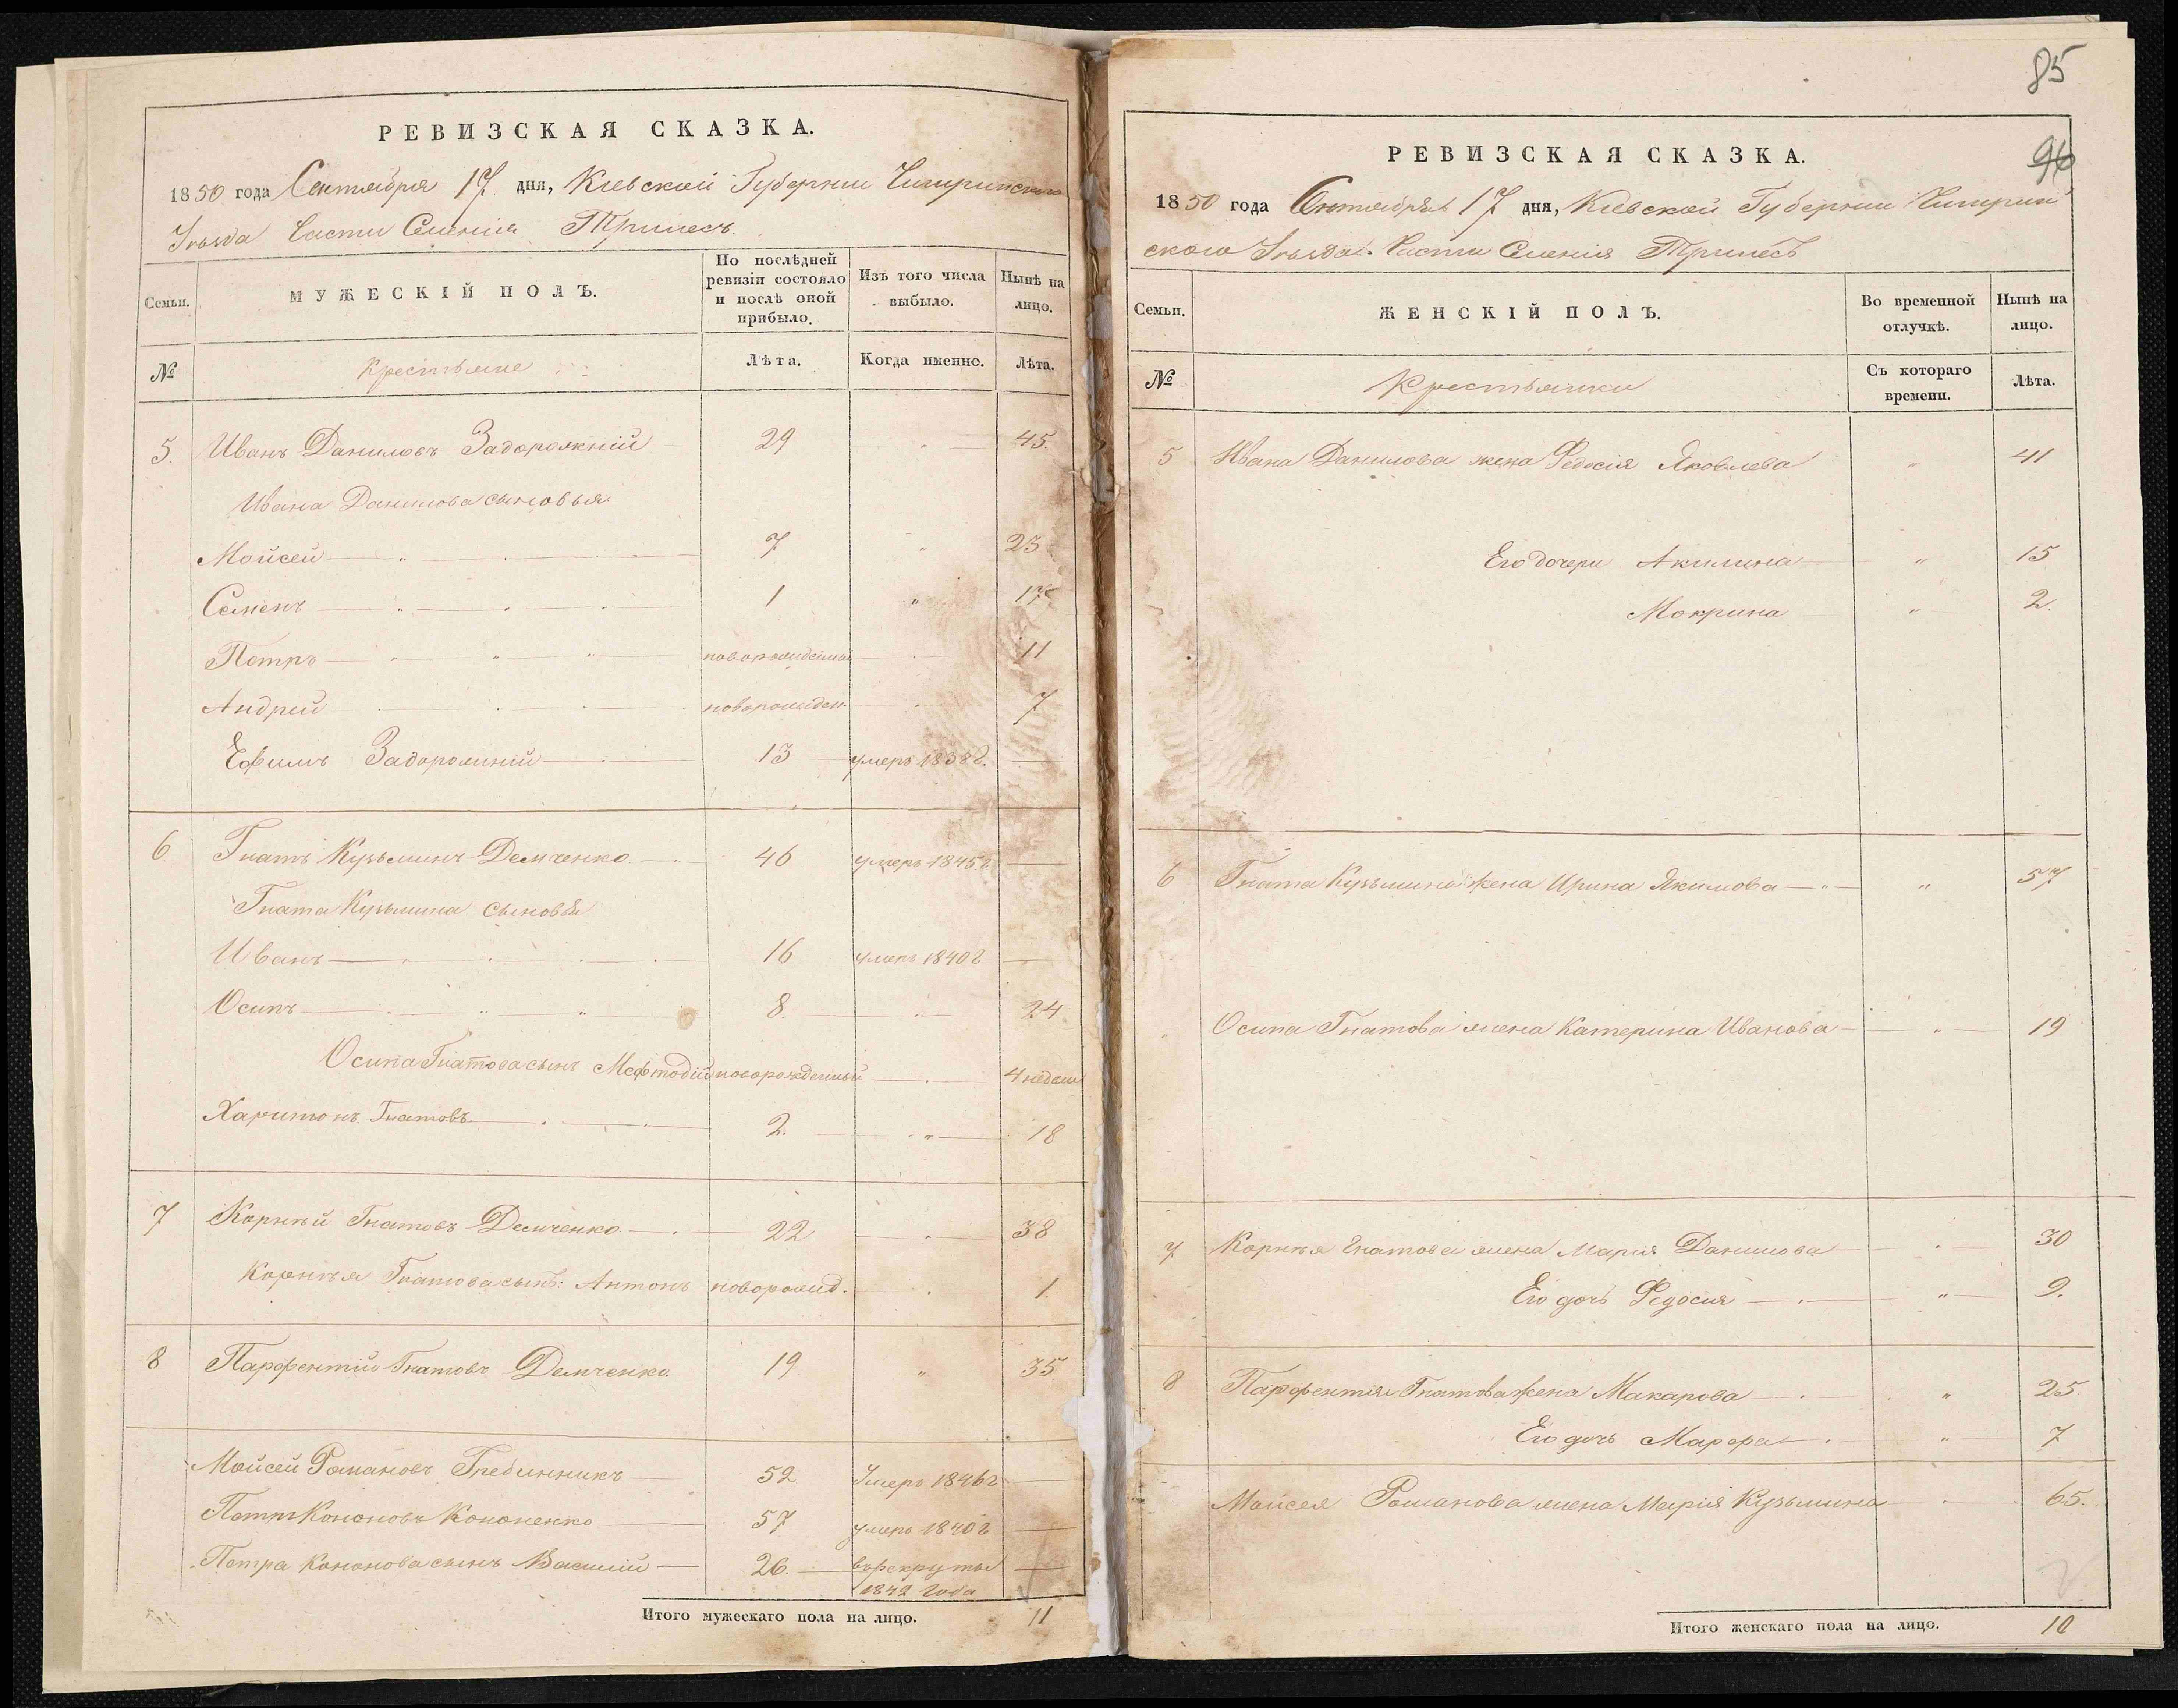 РЕВИЗСКАЯ СКАЗКА.
1850 года Сентября 17 дня, Кіевской Губерніи Чигринского
Уѣзда Части Селенія Трилесъ
Семьи.
МУЖЕСКІЙ ПОЛЪ.
По послѣдней ревизіи состояло и послѣ оной прибыло.
Изъ того числа выбыло.
Нынѣ на лицо.
№ Крестьяне Лѣта. Когда именно. Лѣта.
5. Иванъ Даниловъ Задорожній 29 " 45.
Ивана Данилова сыновья
Мойсей 7 " 23
Семенъ 1 " 17
Петръ новорожденный 11
Андрей новорожден. 7
Ефимъ Задорожній 13 умеръ 1838г. —
6. Гнатъ Кузьминъ Демченко 46 умеръ 1845г —
Гната Кузьмина сыновья
Иванъ 16 умеръ 1840г —
Осипъ 8. 24
Осипа Гнатова сынъ Мефтодій новорожденный 4 недели
Харитонъ Гнатовъ 2. " 18
7 Корнѣй Гнатовъ Демченко 22 " 38
Корнѣя Гнатова сынъ: Антонъ новорожд. 1.
8 Парфентій Гнатовъ Демченко 19 " 35
Мойсей Романовъ Гребинникъ 52 Умеръ 1846г —
Петръ Кононовъ Кононенко 57 умеръ 1840г —
Петра Кононова сынъ Василій 26. въ рекруты —
1842 Года
Итого мужескаго пола на лицо. 11
85
96
РЕВИЗСКАЯ СКАЗКА.
1850 года Сентября 17 дня, Кіевской Губерніи Чигрин
ского Уѣзда. Части Селенія Трилесъ
Семьи.
ЖЕНСКІЙ ПОЛЪ.
Во временной отлучкѣ.
Нынѣ на лицо.
№ Крестьянки Съ котораго времени. Лѣта.
5 Ивана Данилова жена Федосія Яковлева " 41
Его дочери Акилина " 15
Мокрина " 2.
6 Гната Кузьмина жена Ирина Якимова " 57
Осипа Гнатова жена Катерина Иванова " 19
7 Корнѣя Гнатова жена Марія Данилова 30
Его дочь Федосия " 9.
8 Парфентія Гнатова жена Макарова " 25.
Его дочь Марфа " 7
Мойсея Романова жена Марія Кузьмина 65.
Итого женскаго пола на лицо. 10